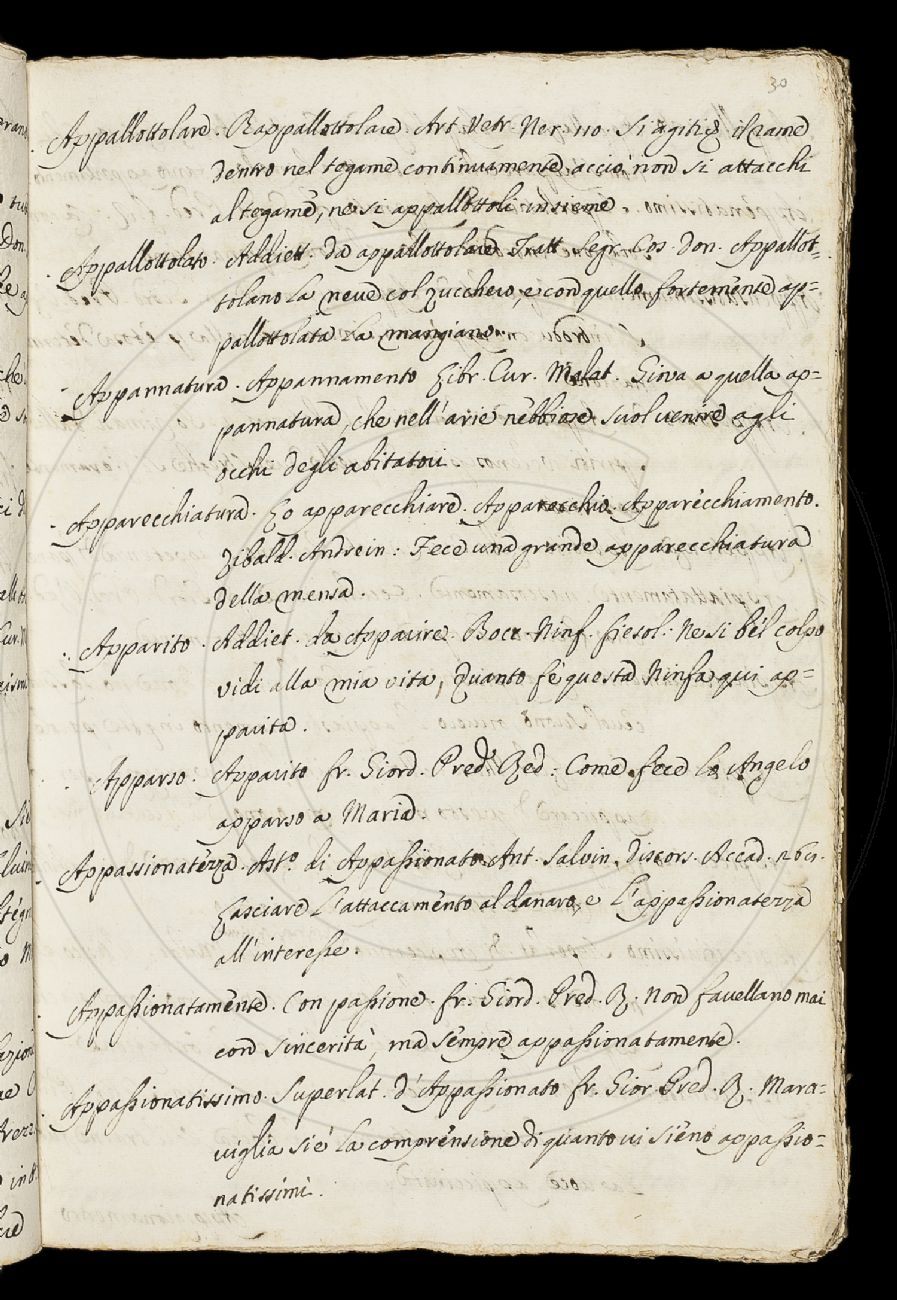 30
Appallottolare. Rappallottolare. Art. Vetr. Ner. 110. Si agiti il rame
dentro nel tegame continuamente, acciò non si attacchi
al tegame, ne si appallottoli insieme.
Appallottolato. Addiett. da appallottolare. Tratt. Segr. Cos. Don. Appallot=
tolano la neve col zucchero, e con quello fortemente ap=
pallottolata la mangiano.
Appannatura. Appannamento Libr. Cur. Malat. Giova a quella ap=
pannatura, che nell' arie nebbiose suol venire agli
occhi degli abitatori.
Apparecchiatura. Lo apparecchiare. Apparecchio. Apparecchiamento.
Zibald. Andrein: Fece una grande apparecchiatura
della mensa.
Apparito. Addiet. da Apparire. Bocc. Ninf. fiesol. Ne sì bel colpo
vidi alla mia vita, Quanto fè questa Ninfa qui ap=
parita.
Apparso. Apparito fr. Giord. Pred. R ed: Come fece lo Angelo
apparso a Maria
Appassionatezza. Ast.º di Appassionato. Ant. Salvin. Discors. Accad.
Lasciare l'attaccamento al danaro, e l'appassionatezza
all'interesse.
Appassionatamente. Con passione. fr. Giord. Pred. R. Non favellano mai
con sincerità, ma sempre appassionatamente.
Appassionatissimo. Superlat. d'Appassionato fr. Gior. Pred. R. Mara=
viglia si è la comprensione di quanto vi sieno appassio=
natissimi.